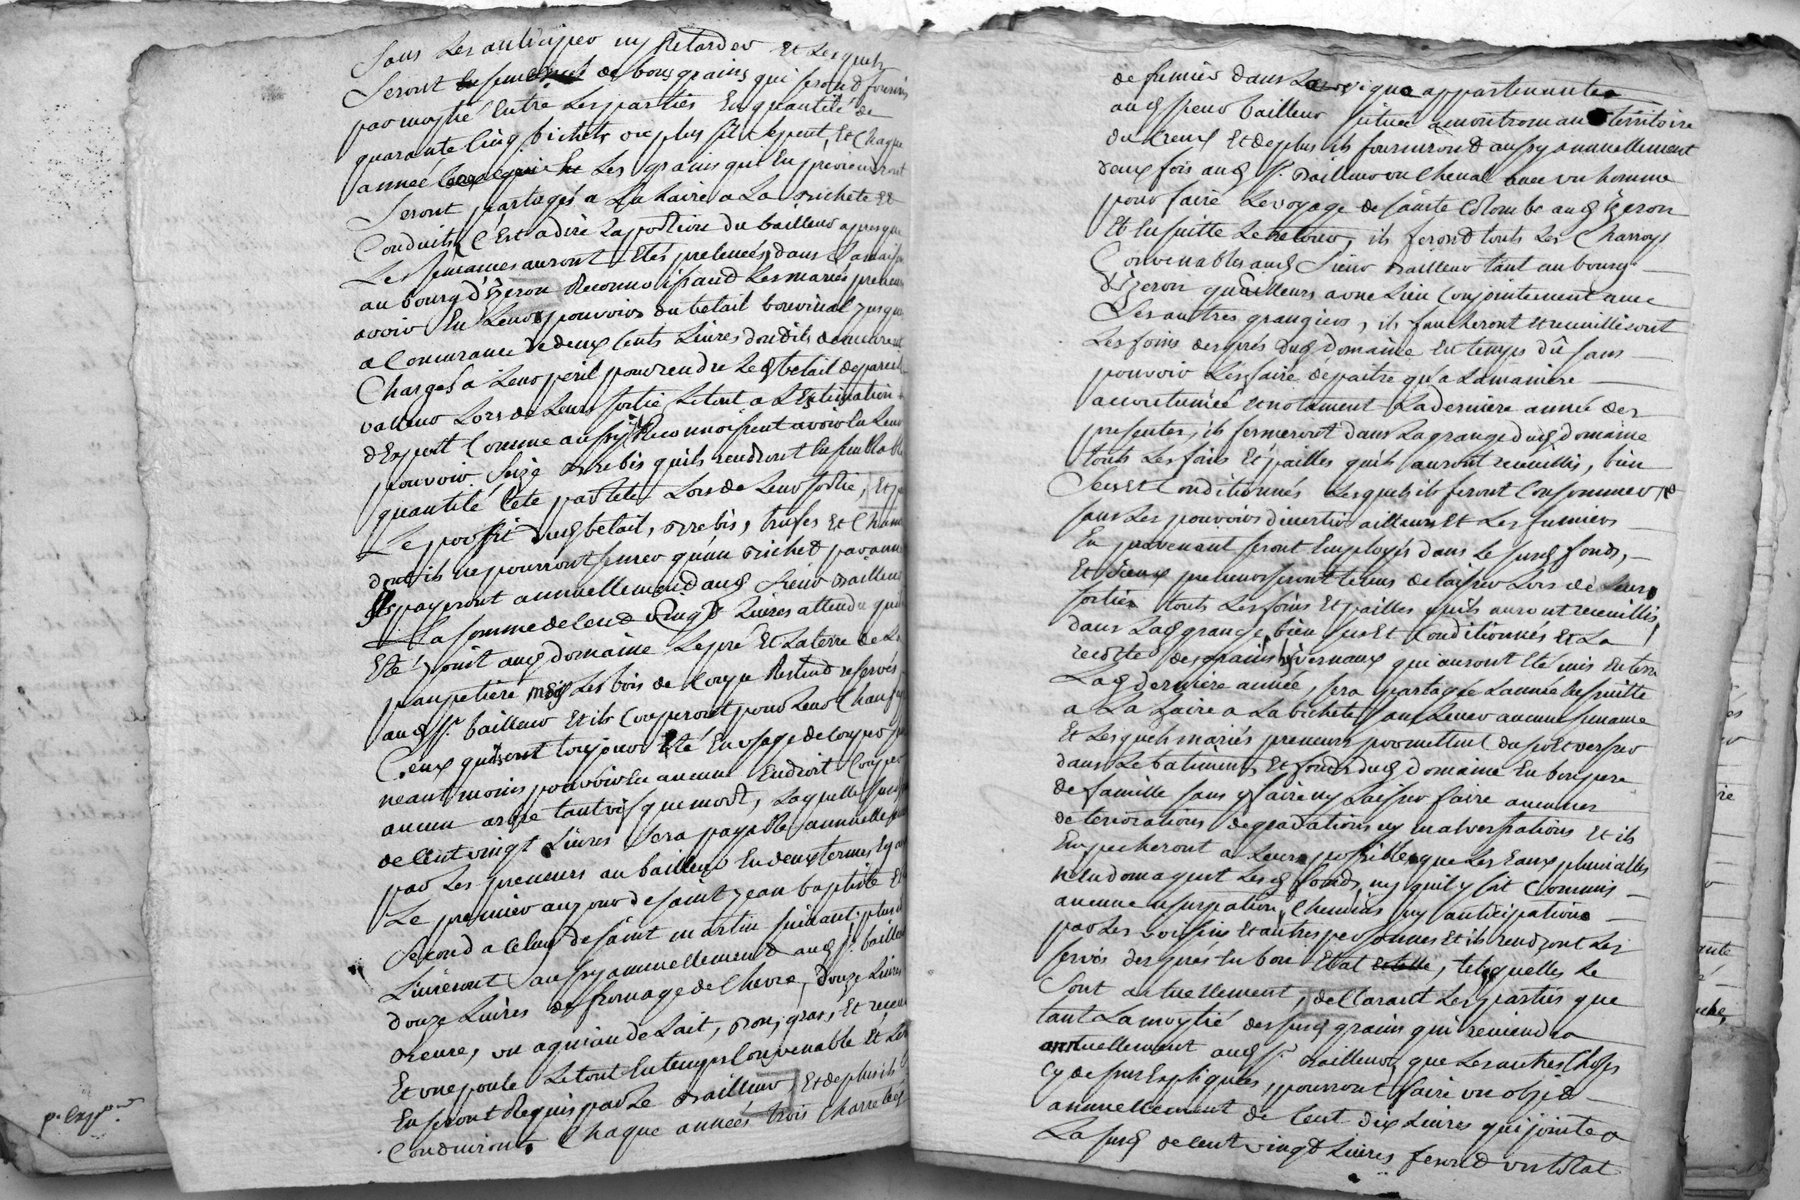 Sans les anticiper ny Retarder Et lesquels
Seront de bons grains qui seront fournis
par moytié Entre les parties En quantité de
quarante Cinq bichets ou plus sil se peut, Et Chaque
année les grains qui En proviendront
Seront partagés a La haire a La Bichete Et
Conduits C'est adire La portion du bailleur apresque
Les semances auront Etés prelevées, dans Sa maison
au bourg d'Yzeron Reconnoissand Les mariés preneurs
avoir En Leur pouvoir du betail bouvinal jusqua
a Concurance de deux Cents Livres dondils demeurent
Chargés a Leur peril pour rendre Led betail de pareille
valleur Lors de Leurs sortie Le tout a L'Estimation
d'Expert Comme aussy Reconnoissent avoir En Leur
pouvoir Seize Brebis quils rendront En semblable
quantité tete par tete Lors de Leur sortie, Et
Le proffit dud betail, Brebis, trufes Et
dont ils ne pourront semer qu'un Bichet par année
Ils payeront annuellemend aud Sieur Bailleur
La somme de Cend vingt Livres attendu quil
Eté joint aud domaine Le pré Et La terre de La
paupetiere Les bois de Coupe Restand reservés
aud Sr. bailleur Et ils Couperont pour Leur Chauf
Ceux quils ont toujours Eté En usage de Couper
neantmoins pouvoir En aucun Endroit Couper
aucun arbre tant vif que mort, Laquelle
de Cent vingt Livres Sera payable annuellement
par Les preneurs au bailleur En deux termes Egaux
Le premier au jour de saint jean baptiste Et
Second a Celuy de saint martin suivant, plus
Livreront aussy annuellemend aud Sr. bailleur
douze Livres de fromage de Chevre, douze Livres
Beure, un agniau de Lait, Bon, gras, Et
Et une poule Le tout En temps Convenable Et
En seront Requis par Le Bailleur, Et de plus ils
Conduiront Chaque années trois Charretées
de fumier dans La vigne appartenante
aud sieur bailleur située a montroman territoire
du Creux Et de plus ils fourniront aussy annuellement
deux fois aud Sr. Bailleur un Cheval avec un homme
pour faire Le voyage de sainte Colombe aud Yzeron
Et Ensuitte Le Retour, ils feront touts Les Charroys
Convenables aud Sieur Bailleur tant au bourg
d'Yzeron qu'ailleurs a une Lieu Conjointement avec
Les autres grangiers, ils faucheront Et recuilliront
Les foins des prés dud domaine En temps dû sans
pouvoir Les faire depaitre qu'a La maniere
accoutumée Et notament La derniere année des
presentes, ils fermeront dans La grange dud domaine
touts Les foins Et pailles quils auront recuillis, bien
Secs Et Conditionnés Lesquels ils feront Consommer
sans Les pouvoir divertir ailleurs Et Les fumiers
En provenant seront Employés dans Le susd fond,
Et iceux preneurs seront tenus de laisser Lors de Leurs
sortie touts Les foins Et pailles quils auront recuillis
dans Lad grange bien secs Et Conditionnés Et La
recolte des grains hivernaux qui auront Eté mis En terre
Lad derniere année, sera partagée L'année Ensuitte
a La haire a La bichete sans Lever aucune semance
Et Lesquels mariés preneurs promettent
dans Le batiments Et fonds dud domaine En bon pere
de famille sans y faire ny Laisser faire aucunes
deteriorations degradations ny malversations Et ils
Empecheront a Leurs possible que Les Eaux pluvialles
n'Endomagent Lesd fonds, ny quil y soit Commis
aucune usurpation, Chemins ny anticipations
par Les voisins Et autres personnes Et ils rendront Les
serves des prés En bon Etat, telles quelles Le
Sont actuellement, declarant Les parties que
tant La moytié des susd grains qui reviendra
annuellement aud Sr. Bailleur que Les autres Choses
Cy dessus Expliquées, pourront faire un objed
annuellement de Cent dix Livres qui jointe a
La susd de Cent vingt Livres ferond un total